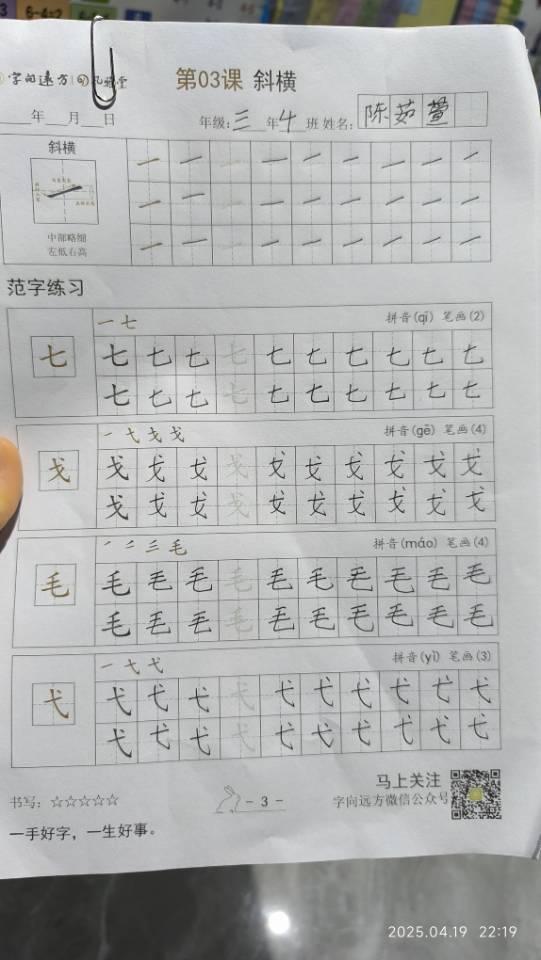 字向远方
第03课 斜横
年 月 日
年级:三年4班 姓名:陈茹萱
斜横
中部略细
左低右高
范字练习
一 七
拼音(qī) 笔画(2)
七 七 七 七 七 七 七 七 七 七 七
七 七 七 七 七 七 七 七 七 七
一 弋 戈 戈
拼音(gē) 笔画(4)
戈 戈 戈 戈 戈 戈 戈 戈 戈 戈 戈
戈 戈 戈 戈 戈 戈 戈 戈 戈 戈
拼音(máo) 笔画(4)
毛 毛 毛 毛 毛 毛 毛 毛 毛 毛 毛
毛 毛 毛 毛 毛 毛 毛 毛 毛 毛
一 弋 弋
拼音(yì) 笔画(3)
弋 弋 弋 弋 弋 弋 弋 弋 弋 弋 弋
弋 弋 弋 弋 弋 弋 弋 弋 弋 弋
书写:☆☆☆☆☆
- 3 -
马上关注
字向远方微信公众号
一手好字,一生好事。
2025.04.19 22:19